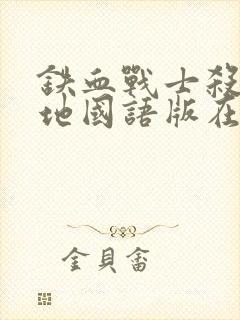 鉄血戰士殺
地國語版在
金貝畲